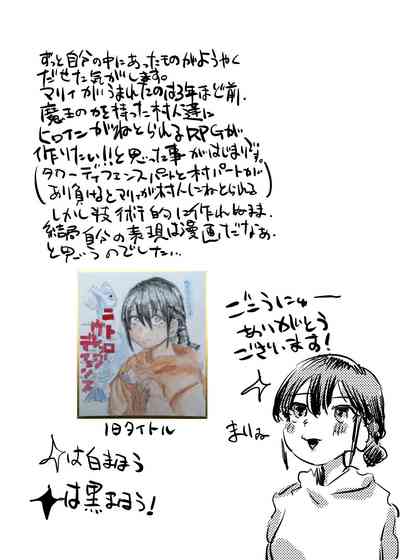 ずっと自分の中にあったものがようやく
だせた気がします。
マリィがうまれたのは3年ほど前、
魔王の力を持った村人達に
ヒロインがねとられるRPGが
作りたい!!と思った事がはじまりです。
(タワーディフェンスパートと村パートが
あり負けるとマリィが村人にねとられる)
しかし技術的に作れぬまま、
結局自分の表現は漫画でだなあ、
と思うのでした…
ごこうにゅー
ありがとう
ございます!
ニトロ
ウィッチ
旧タイトル
まりぃ
は白まほう
は黒まほう!